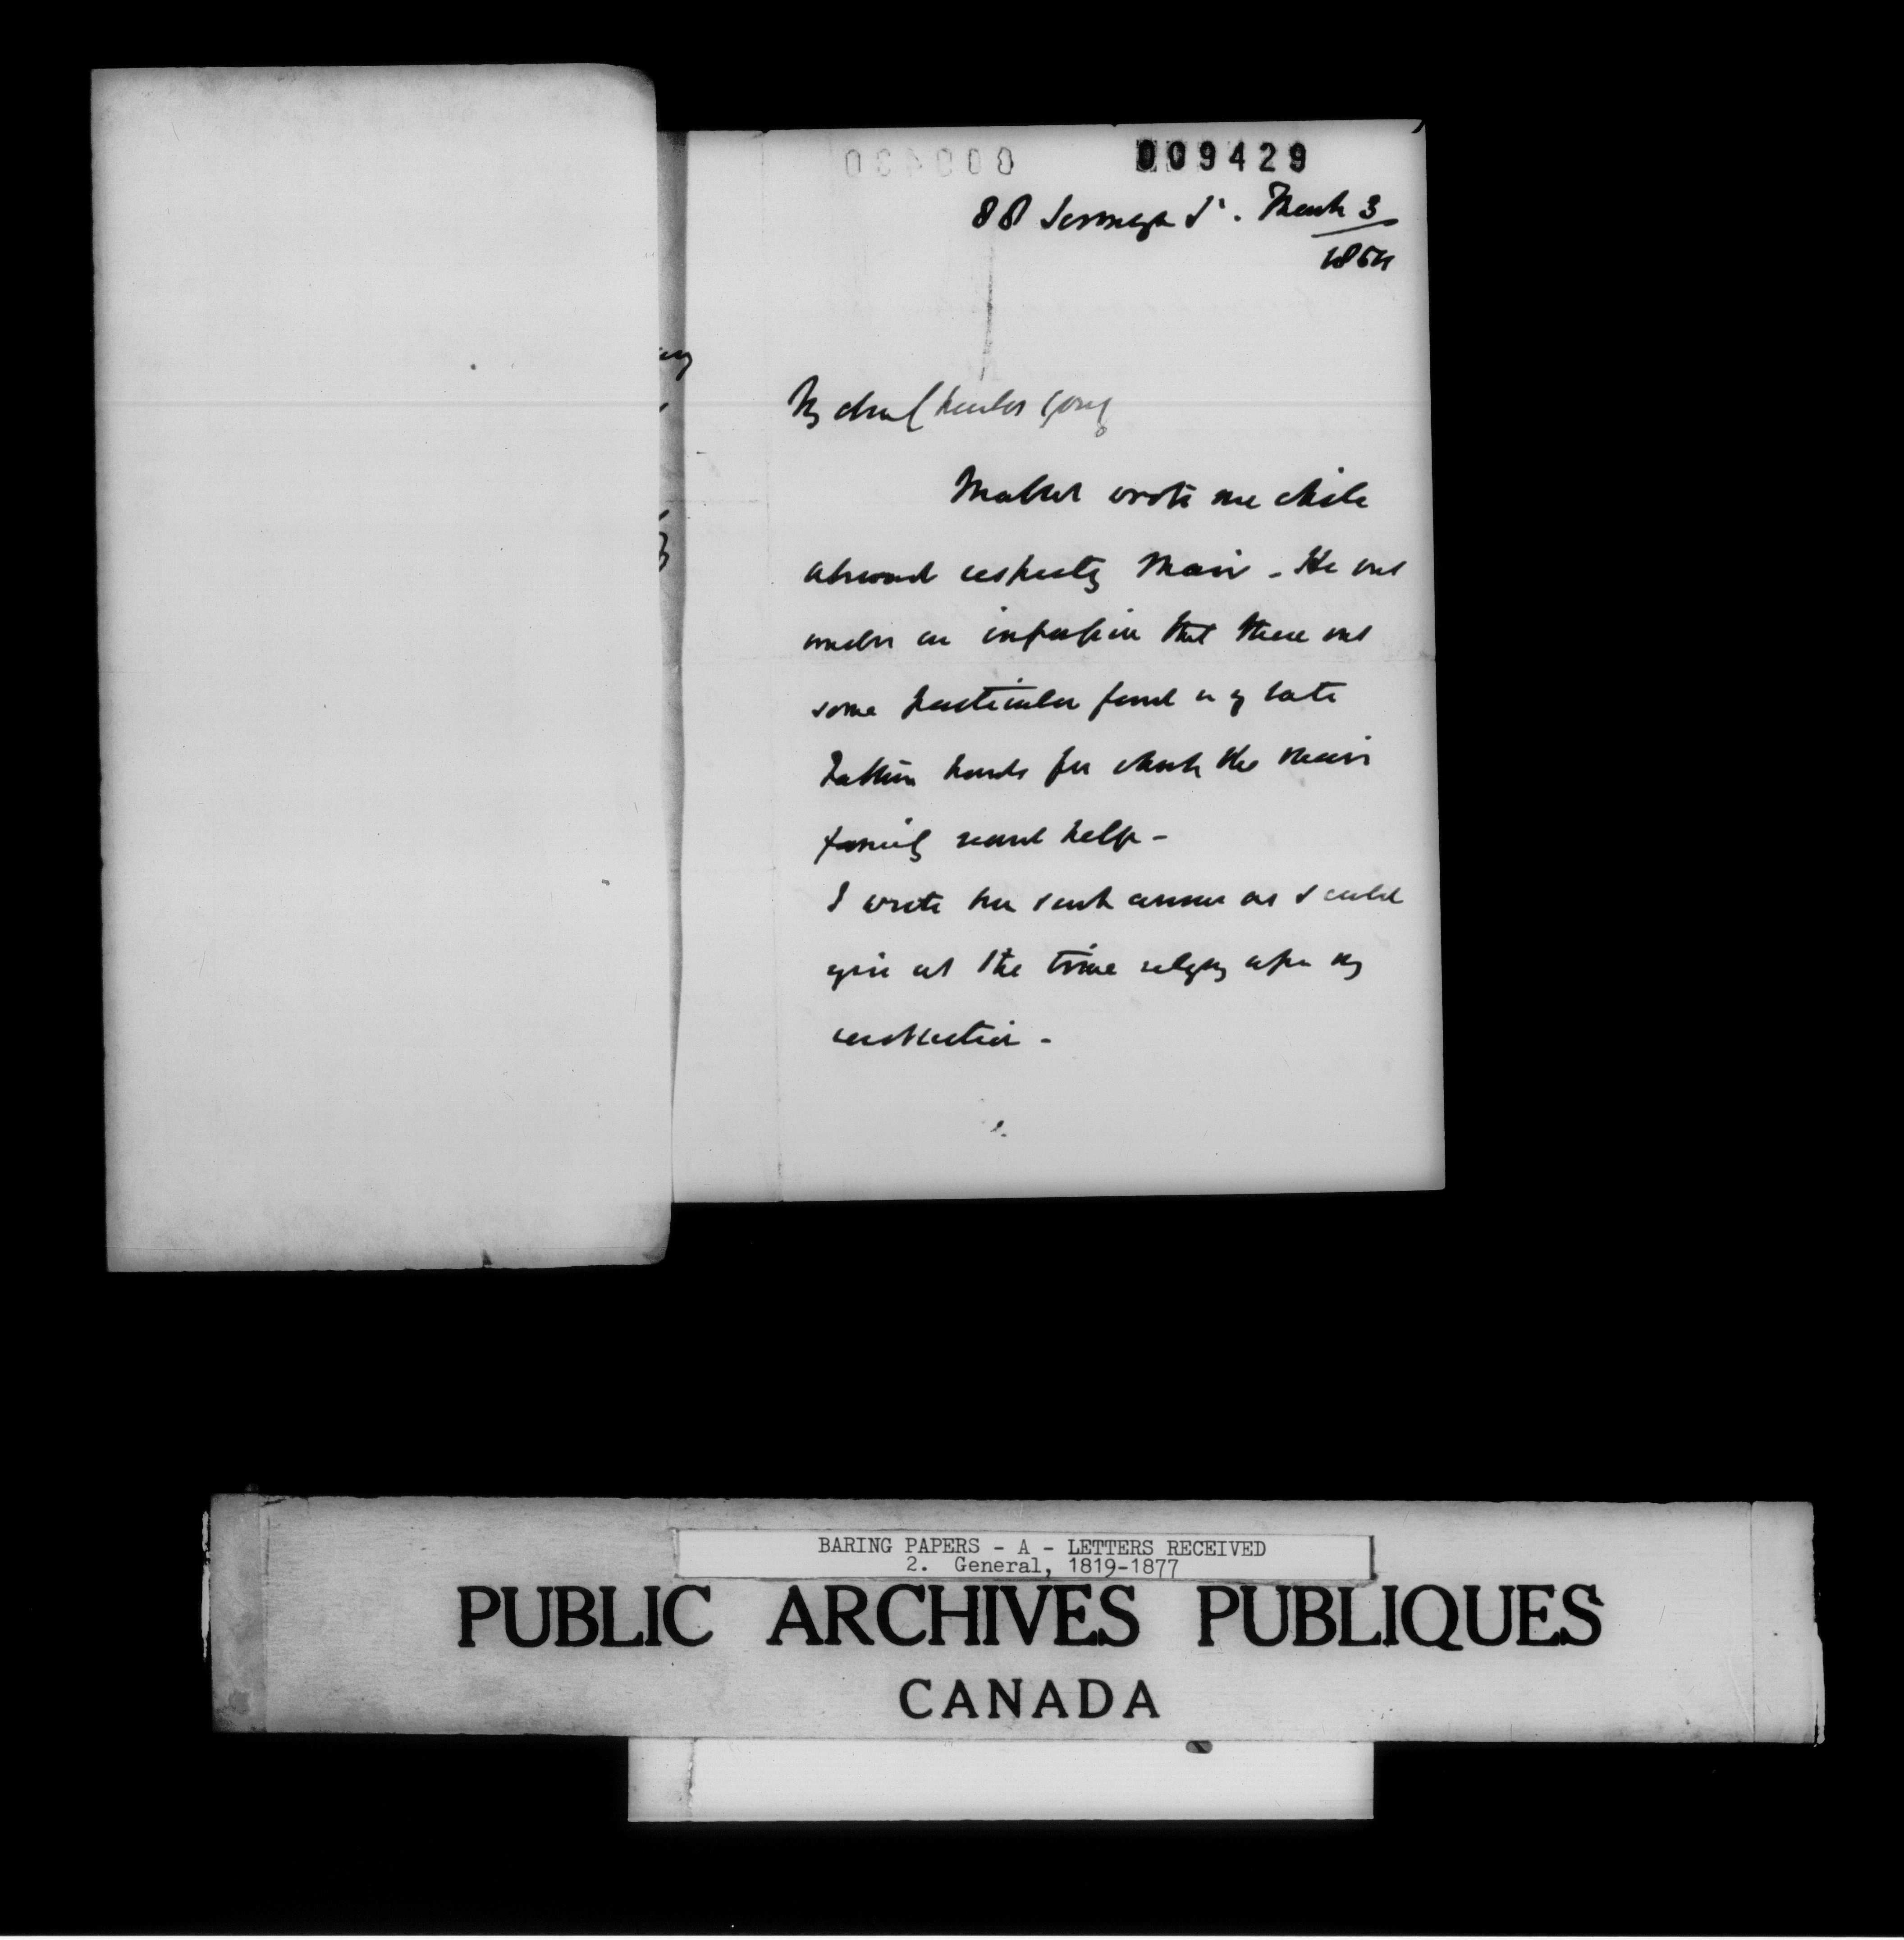 009429
88 Jermyn St. March 3
1854
My dear Charles Young
wrote me while
abroad respecting Mair - He was
under an impression that there was
some particular fund in my late
Fathers hands for which the Mair
family want help -
I wrote him such answer as I could
give at the time relying upon my
recollection -
BARING PAPERS - A - LETTERS RECEIVED
2. General, 1819-1877
PUBLIC ARCHIVES PUBLIQUES
CANADA